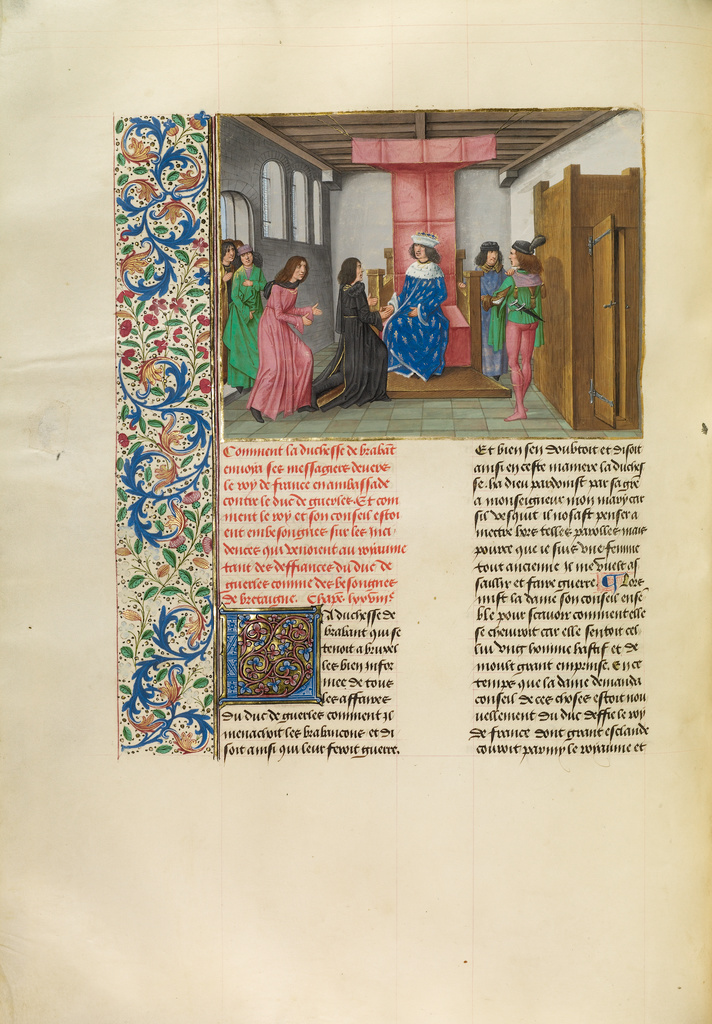 Comment la duchesse de brabāt
enuoia ses messagiers deuers
le roy de france en ambassade
contre le duc de guerles. Et com
ment le roy et son conseil estoi
ent embesongnies sur les inci
dences qui venoient au royaume
tant des deffiances du duc de
guerles comme des besongnes
de bretaigne. Chapᵉ.
La duchesse de
brabant qui se
tenoit a bruxel
les bien infor
mee de tous
les affaires
du duc de guerles comment il
menacoit les brabancons et di
soit ainsi qui leur feroit guerre.
Et bien sen doubtoit et disoit
ainsi en ceste maniere la duches
se. ha dieu pardoinst par sa grē
a monseigneur mon mary car
sil vesquit il nosast penser a
mectre hors telles parolles mais
pource que ie suis vne femme
tout ancienne il me vuelt as
saillir et faire guerre. ¶ Lors
mist la dame son conseil ense
ble pour scauoir comment elle
se cheuiroit car elle sentoit cel
lui vng homme hastif et de
moult grant emprinse. En ce
temps que la dame demanda
conseil de ces choses estoit nou
uellement du duc deffie le roy
de france dont grant esclande
couroit parmy le royaume et